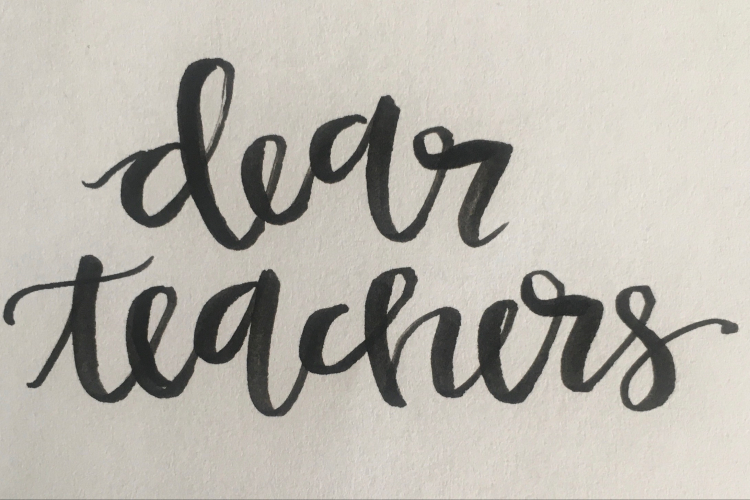 dear
teachers